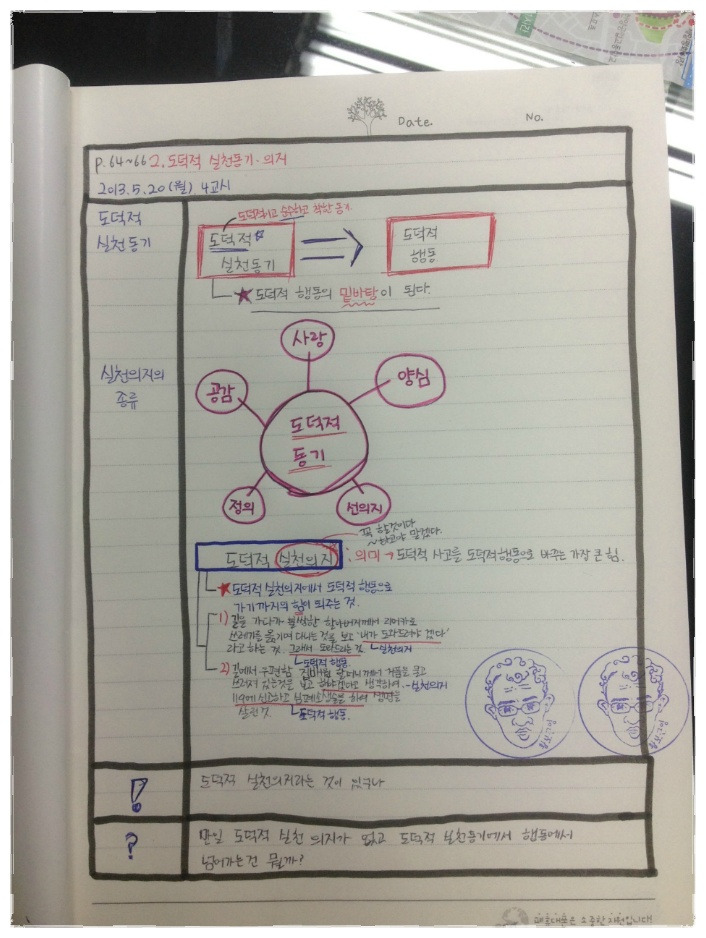 Date.
No.
p.64~66 2. 도덕적 실천동기·의지
2013.5.20(월) 4교시
도덕적
실천동기
도덕적이고 순수하고 착한 동기.
도덕적
실천동기
도덕적
행동
★도덕적 행동의 밑바탕이 된다.
실천의지의
종류
사랑
공감
양심
도덕적
동기
정의
선의지
꼭 할것이다
~하고야 말겠다.
도덕적 실천의지 : 의미 → 도덕적 사고를 도덕적행동으로 바꾸는 가장 큰 힘.
★도덕적 실천의지에서 도덕적 행동으로
가기까지의 힘이 되주는 것.
1) 길을 가다가 불쌍한 할아버지께서 리어카로
쓰레기를 옮기며 다니는 것을 보고 '내가 도와드려야 겠다'
라고 하는 것. 그래서 도와드리는것. 실천의지
도덕적 행동.
2) 길에서
할머니께서
생각하여. 실천의지
119에 신고하고
하여 생명을
살린것. 도덕적 행동.
!
도덕적 실천의지라는 것이 있구나
?
만일 도덕적 실천 의지가 없고 도덕적 실천동기에서 행동에서
넘어가는건 뭘까?
소중한 자원입니다!